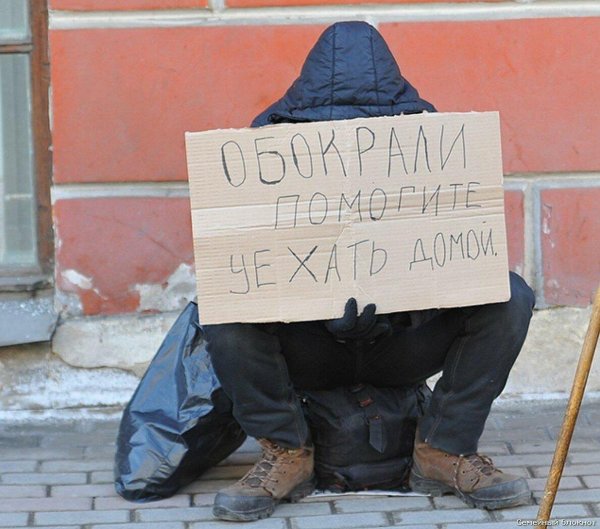 ОБОКРАЛИ
ПОМОГИТЕ
УЕХАТЬ ДОМОЙ.
Семейный Блокнот